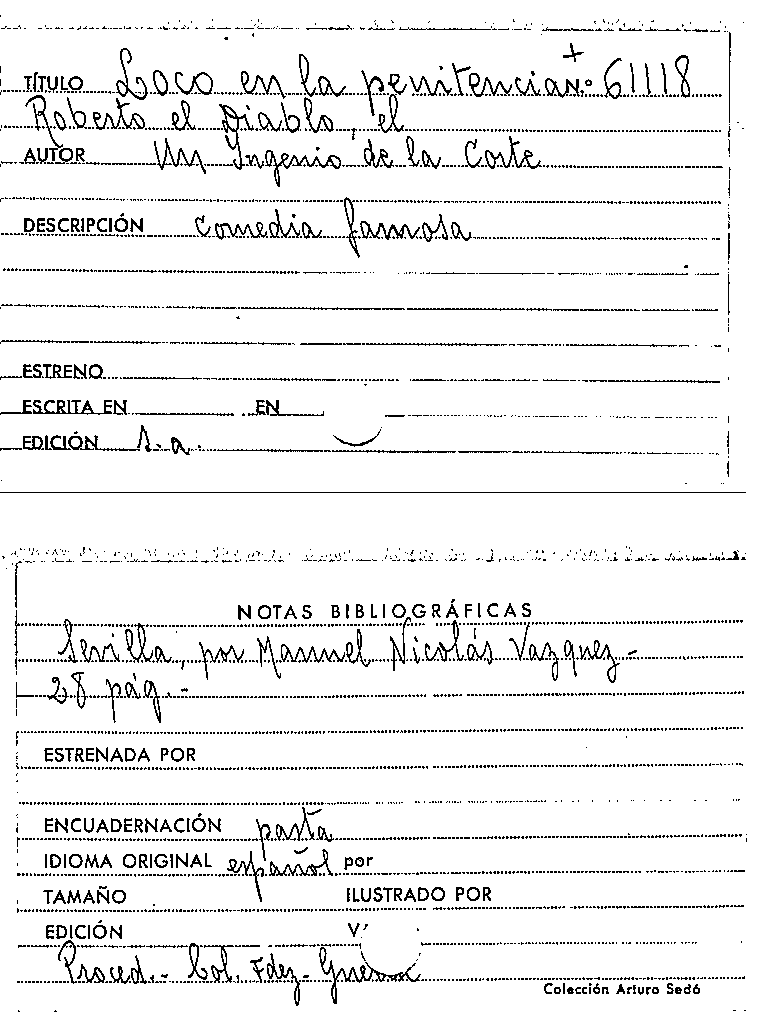 TÍTULO Loco en la penitencia + N.º 61118
Roberto el Diablo, el
AUTOR Un Ingenio de la Corte
DESCRIPCIÓN Comedia famosa
ESTRENO
ESCRITA EN EN
EDICIÓN s.a.
NOTAS BIBLIOGRÁFICAS
Sevilla, por Manuel Nicolás Vazquez -
28 pág. -
ESTRENADA POR
ENCUADERNACIÓN pasta
IDIOMA ORIGINAL español por
TAMAÑO ILUSTRADO POR
EDICIÓN
Proced. - Col. Fdez - Guerra
Colección Arturo Sedó